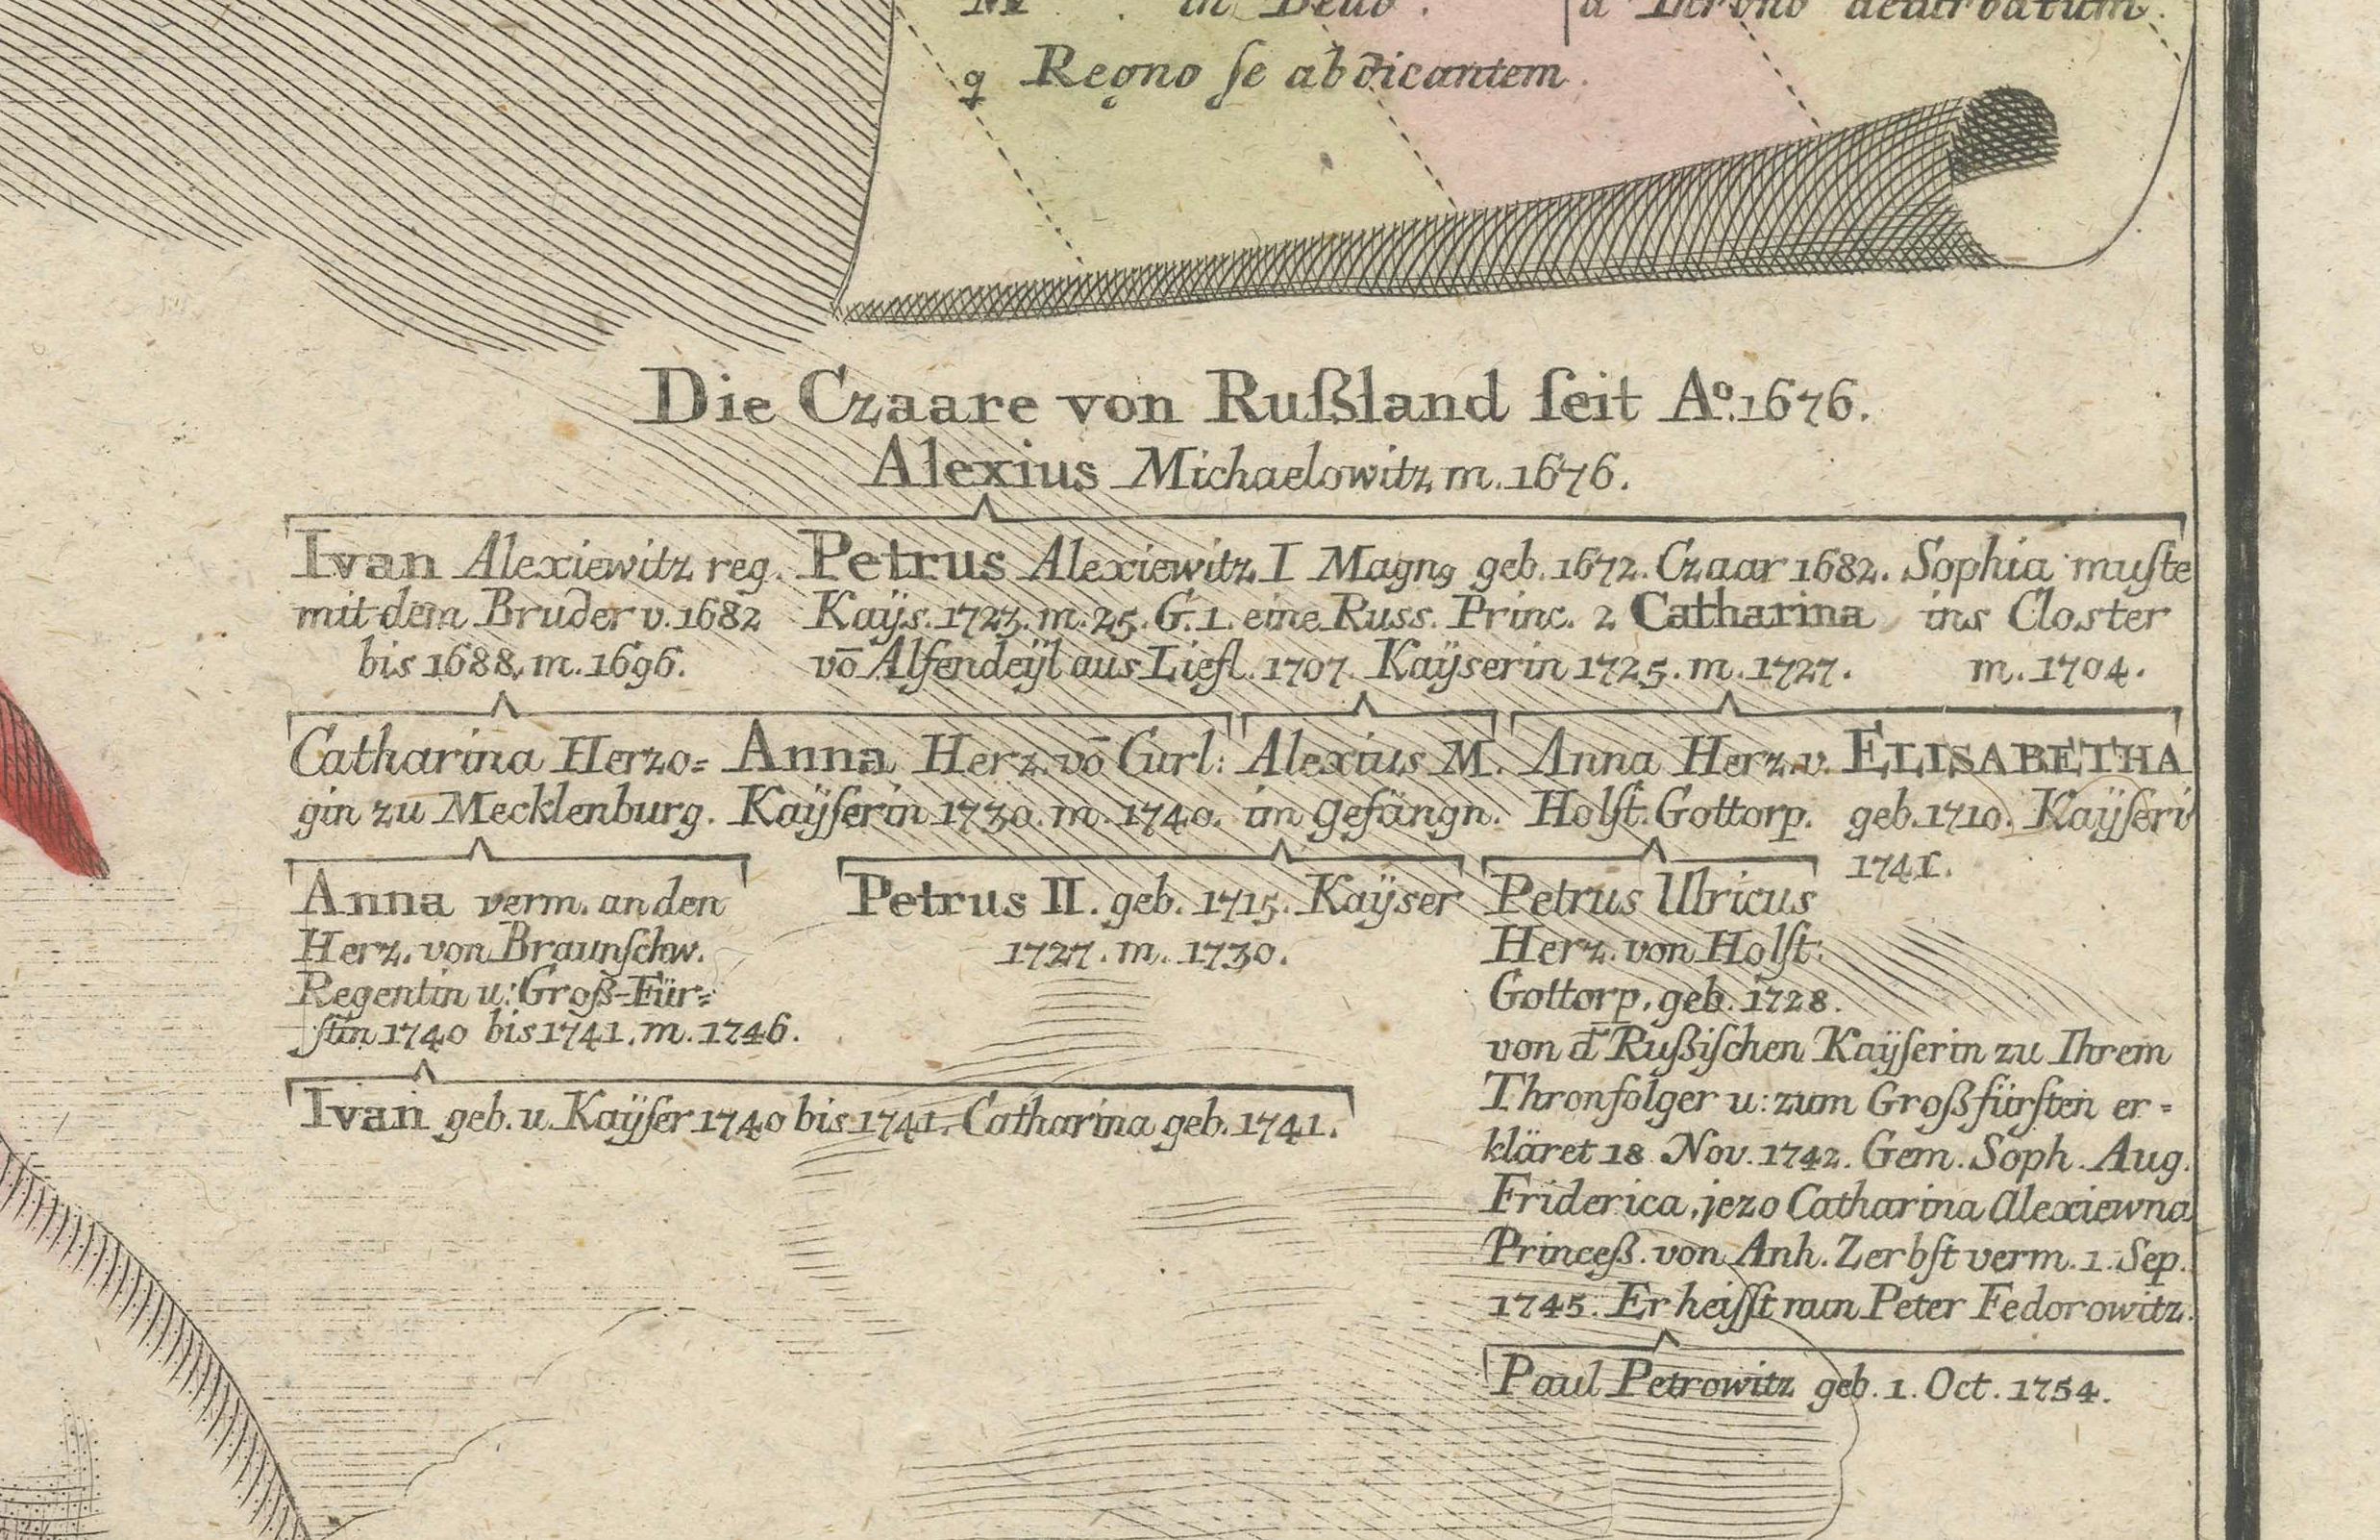 in Bello . a Throno deturbatum.
q Regno ſe abdicantem.
Die Czaare von Rußland ſeit Aº. 1676.
Alexius Michaelowitz m. 1676.
Ivan Alexiewitz reg.
mit dem Bruder v. 1682
bis 1688. m. 1696.
Petrus Alexiewitz I Magn9 geb. 1672. Czaar 1682.
Kaÿs. 1723. m. 25. G. 1. eine Russ. Princ. 2 Catharina
vō Alfendeÿl aus Liefl. 1707. Kaÿserin 1725. m. 1727.
Sophia muſte
ins Closter
m. 1704.
Catharina Herzo=
gin zu Mecklenburg.
Anna Herz. vō Curl:
Kaÿſerin 1730. m. 1740.
Alexius M.
im gefängn.
Anna Herz. v.
Holſt. Gottorp.
ELISABETHA
geb. 1710. Kaÿſeri
1741.
Anna verm. an den
Herz. von Braunſchw.
Regentin u: Groß-Für=
ſtin 1740 bis 1741. m. 1746.
Petrus II. geb. 1715. Kaÿser
1727. m. 1730.
Petrus Ulricus
Herz. von Holſt:
Gottorp. geb. 1728.
von d̄ Rußiſchen Kaÿſerin zu Ihrem
Thronfolger u: zum Großfürſten er=
kläret 18 Nov. 1742. Gem. Soph. Aug.
Friderica, jezo Catharina Alexiewna
Princeß. von Anh. Zerbſt verm. 1. Sep.
1745. Er heiſſt nun Peter Fedorowitz.
Ivan geb. u. Kaÿſer 1740 bis 1741. Catharina geb. 1741.
Paul Petrowitz geb. 1. Oct. 1754.